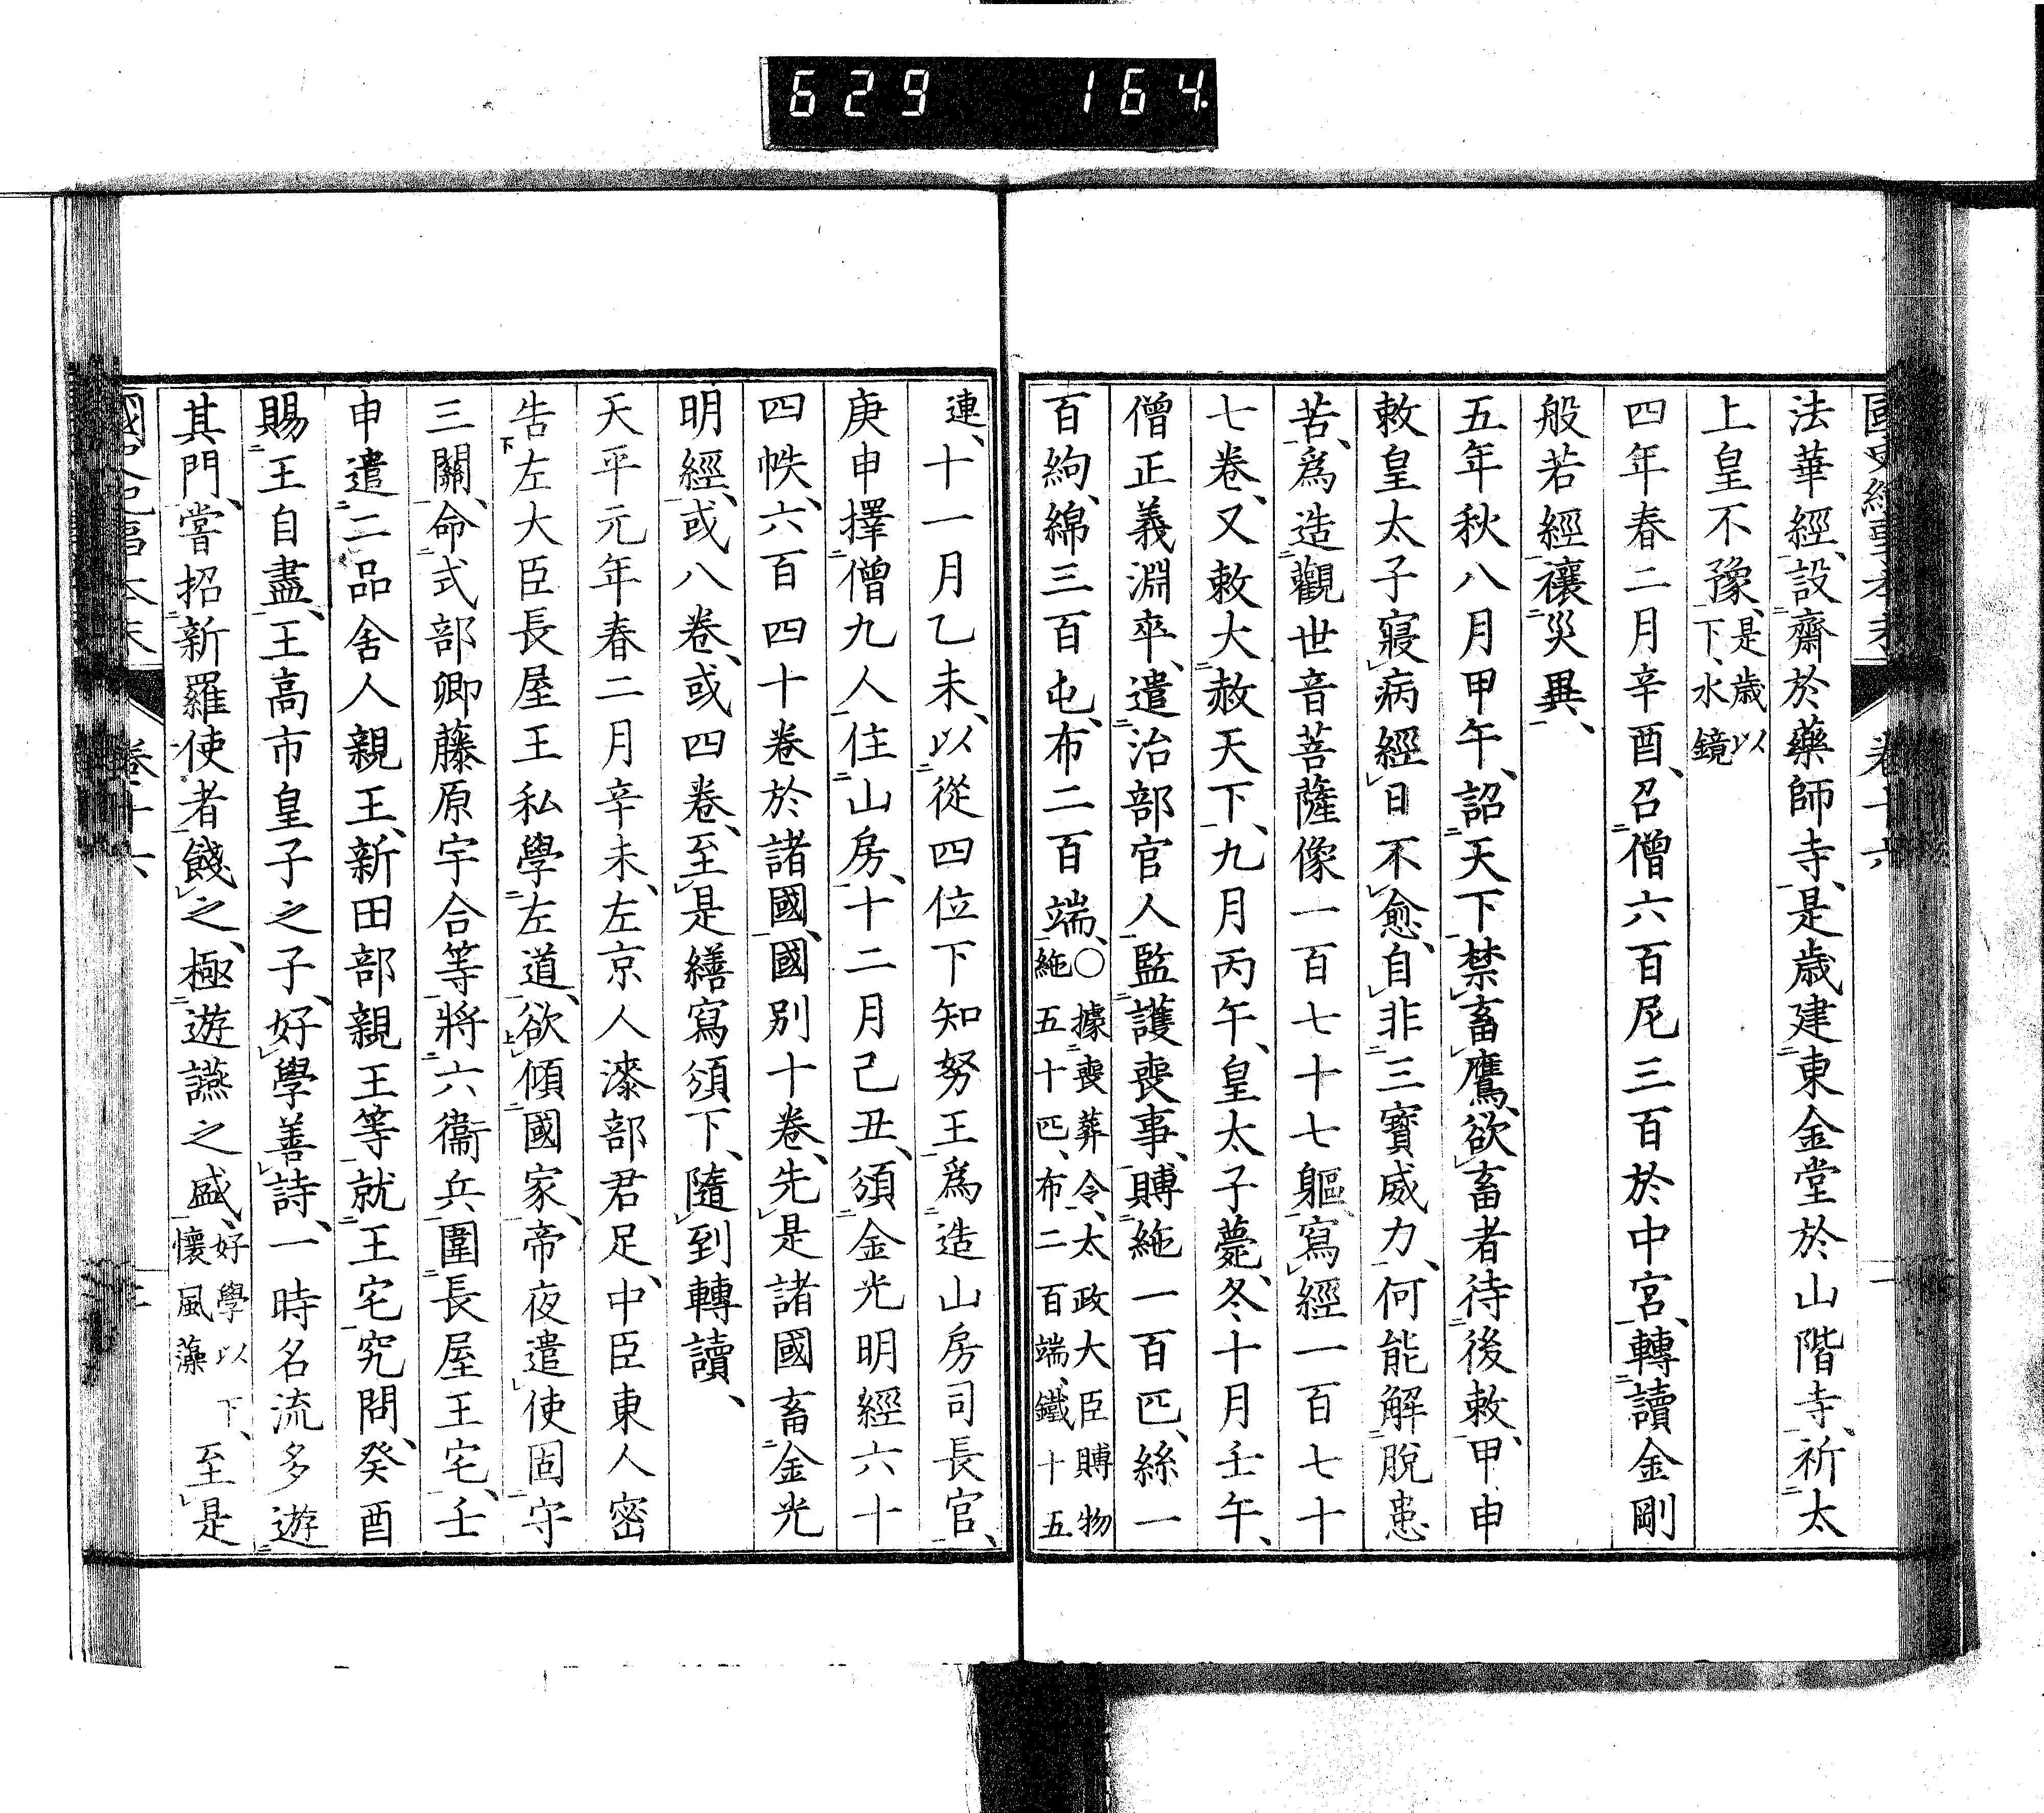 629 164
法華經、設齋於藥師寺、是歳建東金堂於山階寺、祈太
上皇不豫、是歳以下、水鏡
四年春二月辛酉、召僧六百尼三百於中宮、轉讀金剛
般若經禳災異、
五年秋八月甲午、詔天下禁畜鷹、欲畜者待後敕、甲申
敕皇太子寢病經日不愈、自非三寶威力、何能解脫患
苦、爲造觀世音菩薩像一百七十七軀、寫經一百七十
七卷、又敕大赦天下、九月丙午、皇太子薨、冬十月壬午、
僧正義淵卒、遣治部官人監護喪事、賻絁一百匹、絲一
百絇、綿三百屯、布二百端、○據喪葬令、太政大臣賻物絁五十匹、布二百端、鐵十五
連、十一月乙未、以從四位下知努王爲造山房司長官、
庚申擇僧九人住山房、十二月己丑、頒金光明經六十
四帙、六百四十卷於諸國、國別十卷、先是諸國畜金光
明經、或八卷、或四卷、至是繕寫頒下、隨到轉讀、
天平元年春二月辛未、左京人漆部君足、中臣東人密
告左大臣長屋王私學左道、欲傾國家、帝夜遣使固守
三關、命式部卿藤原宇合等將六衞兵圍長屋王宅、壬
申遣二品舍人親王、新田部親王等就王宅究問、癸酉
賜王自盡、王高市皇子之子、好學善詩、一時名流多遊
其門、嘗招新羅使者餞之、極遊讌之盛、好學以下、懷風藻至是
卷十六